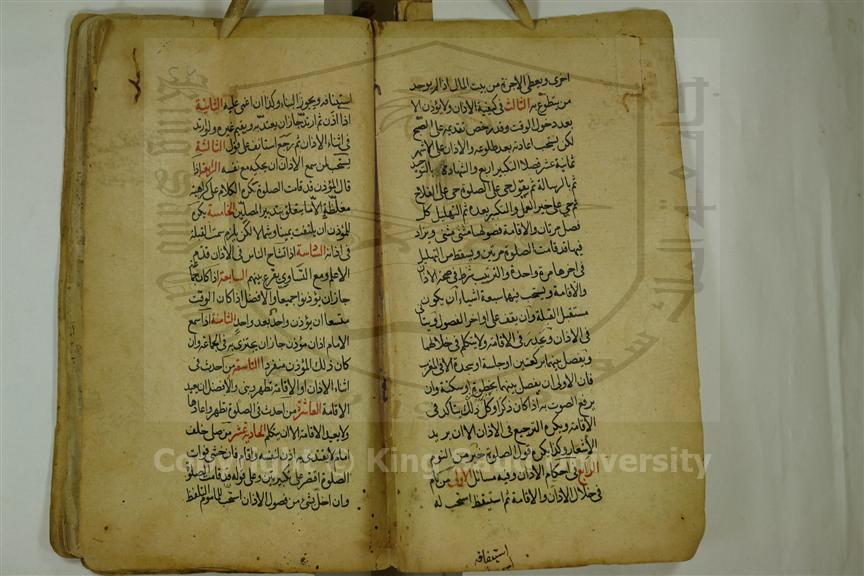 اخرى ويعطى الاجرة من بيت المال اذا لم يوجد
من يتطوع به الثالث في كيفية الاذان ولا يؤذن الا
بعد دخول الوقت وقد رخص تقديمه على الصبح
لكن يستحب اعادته بعد طلوعه والاذان على الاشهر
ثمانية عشر فصلا التكبير اربع والشهادة بالتوحيد
ثم بالرسالة ثم يقول حي على الصلوة حي على الفلاح
ثم حي على خير العمل والتكبير بعده ثم التهليل كل
فصل مرتان والاقامة فصولها مثنى مثنى ويزاد
فيها قد قامت الصلوة مرتين ويسقط من التهليل
في اخرها مرة واحدة والترتيب شرط في صحة الاذان
والاقامة ويستحب فيها سبعة اشياء ان يكون
مستقبل القبلة وان يقف على اواخر الفصول ويتانى
في الاذان ويحدر في الاقامة ولا يتكلم في خلالهما
ويفصل بينهما بركعتين او جلسة او سجدة الا في المغرب
فان الاولى ان يفصل بينهما بخطوة او سكتة وان
يرفع الصوت به اذا كان ذكرا وكل ذلك يتاكد في
الاقامة ويكره الترجيع في الاذان الا ان يريد
الاشعار وكذا يكره قول الصلوة خير من النوم
الرابع في احكام الاذان وفيه مسائل الاولى من نام
في خلال الاذان والاقامة ثم استيقظ استحب له
استينافه
استينافه ويجوز البناء وكذا ان اغمي عليه الثانية
اذا اذن ثم ارتد جاز ان يعتد به ويقيم غيره ولو ارتد
في اثناء الاذان ثم رجع استانف على قول الثالثة
يستحب لمن سمع الاذان ان يحكيه مع نفسه الرابعة اذا
قال المؤذن قد قامت الصلوة يكره الكلام على كراهية
مغلظة الا ما يتعلق بتدبير المصلين الخامسة يكره
للمؤذن ان يلتفت يمينا وشمالا لكن يلزم سمت القبلة
في اذانه السادسة اذا تشاح الناس في الاذان قدم
الاعلم ومع التساوي يقرع بينهم السابعة اذا كان جماعة
جاز ان يؤذنوا جميعا والافضل اذا كان الوقت
متسعا ان يؤذن واحد بعد واحد الثامنة اذا سمع
الامام اذان مؤذن جاز ان يجتزى به في الجماعة وان
كان ذلك المؤذن منفردا التاسعة من احدث في
اثناء الاذان او الاقامة تطهر وبنى والافضل ان يعيد
الاقامة العاشرة من احدث في الصلوة تطهر واعادها
ولا يعيد الاقامة الا ان يتكلم الحادية عشر من صلى خلف
امام لا يقتدى به اذن لنفسه واقام فان خشي فوات
الصلوة اقتصر على تكبيرتين وعلى قوله قد قامت الصلوة
وان اخل بشئ من فصول الاذان استحب للماموم التلفظ
Copyright © King Saud University